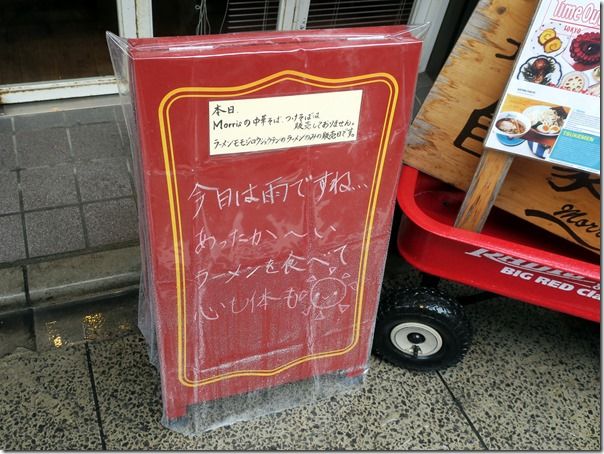 本日
Morrisの中華そば、つけそばは
販売しておりません。
ラーメンモモジロウショウテンのラーメンのみの販売日です。
今日は雨ですね…
あったか〜い
ラーメンを食べて
心も体も
Time Out
TOKYO
TSUKEMEN
Morris
BIG RED Cla